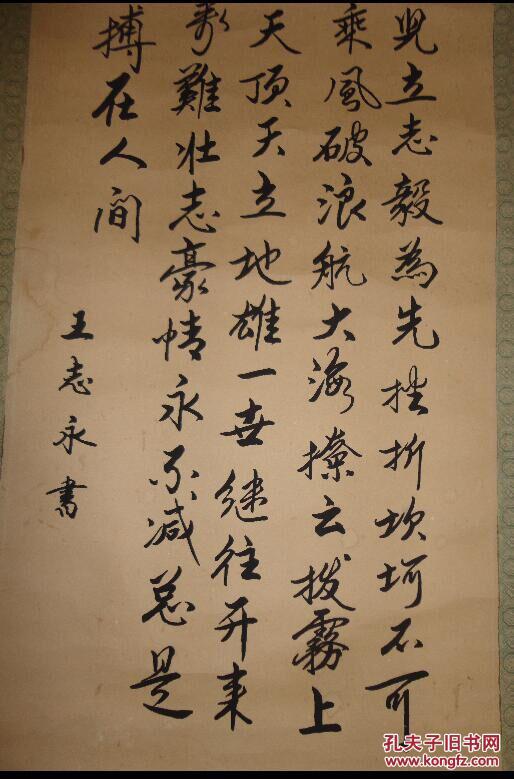 兒立志毅為先挫折坎坷不可
乘風破浪航大海撩云拨霧上
天頂天立地雄一世继往开来
難壮志豪情永不减总是
搏在人间
王志永書
孔夫子旧书网
www.kongfz.com